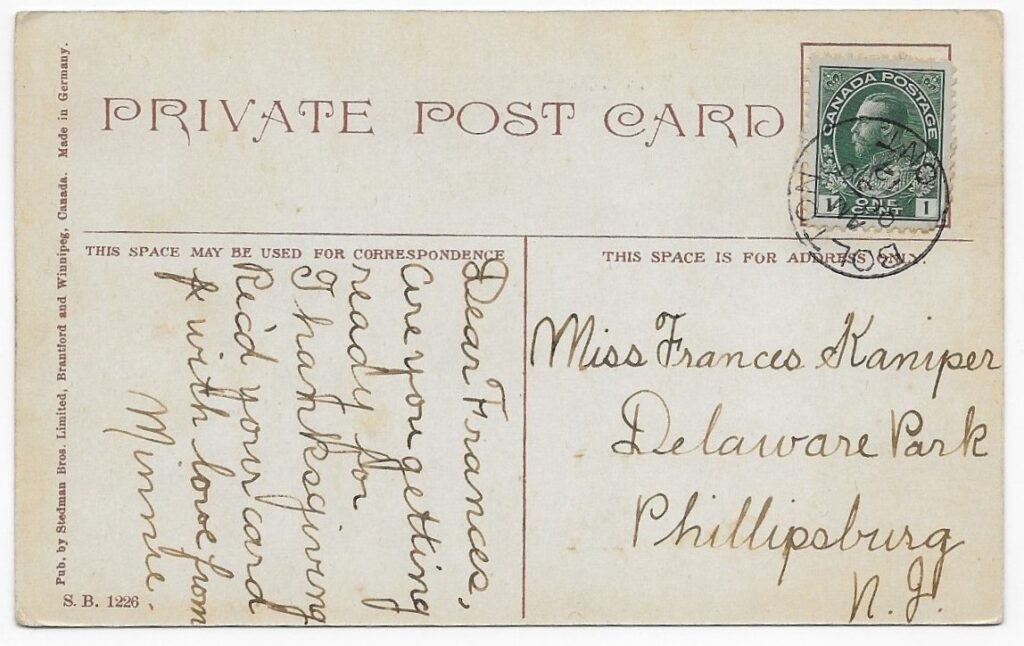 PRIVATE POST CARD
CANADA POSTAGE
1 ONE CENT 1
BOLTON
ONT
THIS SPACE MAY BE USED FOR CORRESPONDENCE
THIS SPACE IS FOR ADDRESS ONLY.
Dear Frances,
Are you getting
ready for
Thanksgiving
Rec'd your card
& with love from
Minnie.
Miss Frances Kaniper
Delaware Park
Phillipsburg
N. J.
Pub. by Stedman Bros. Limited, Brantford and Winnipeg, Canada. Made in Germany.
S. B. 1226